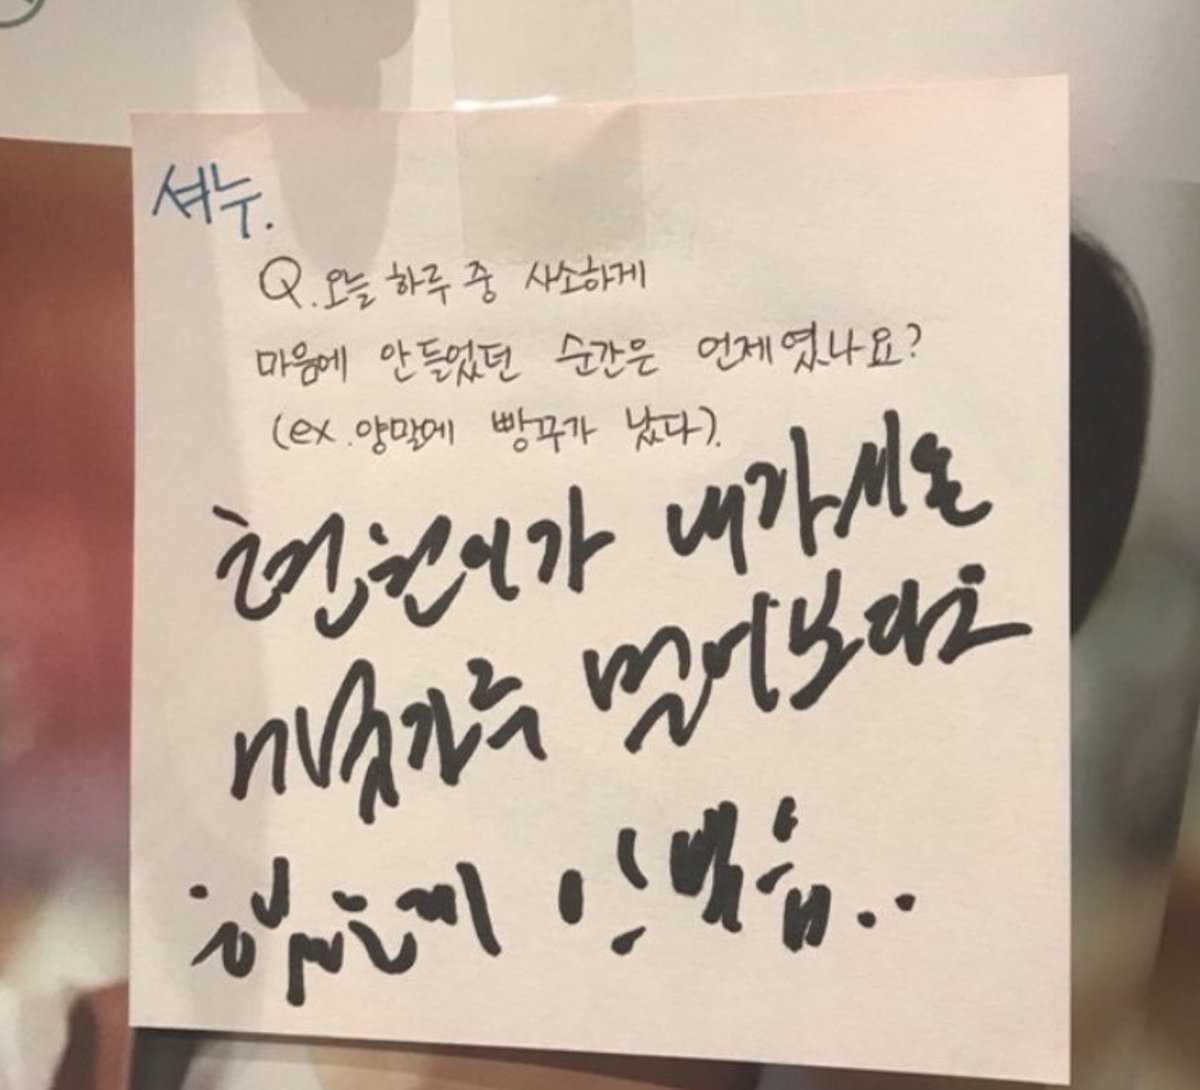 셔누.
Q. 오늘 하루 중 사소하게
마음에 안들었던 순간은 언제였나요?
(ex. 양말에 빵꾸가 났다).
형원이가 내가
미숫가루 먹어보라고
했는데 안먹음..